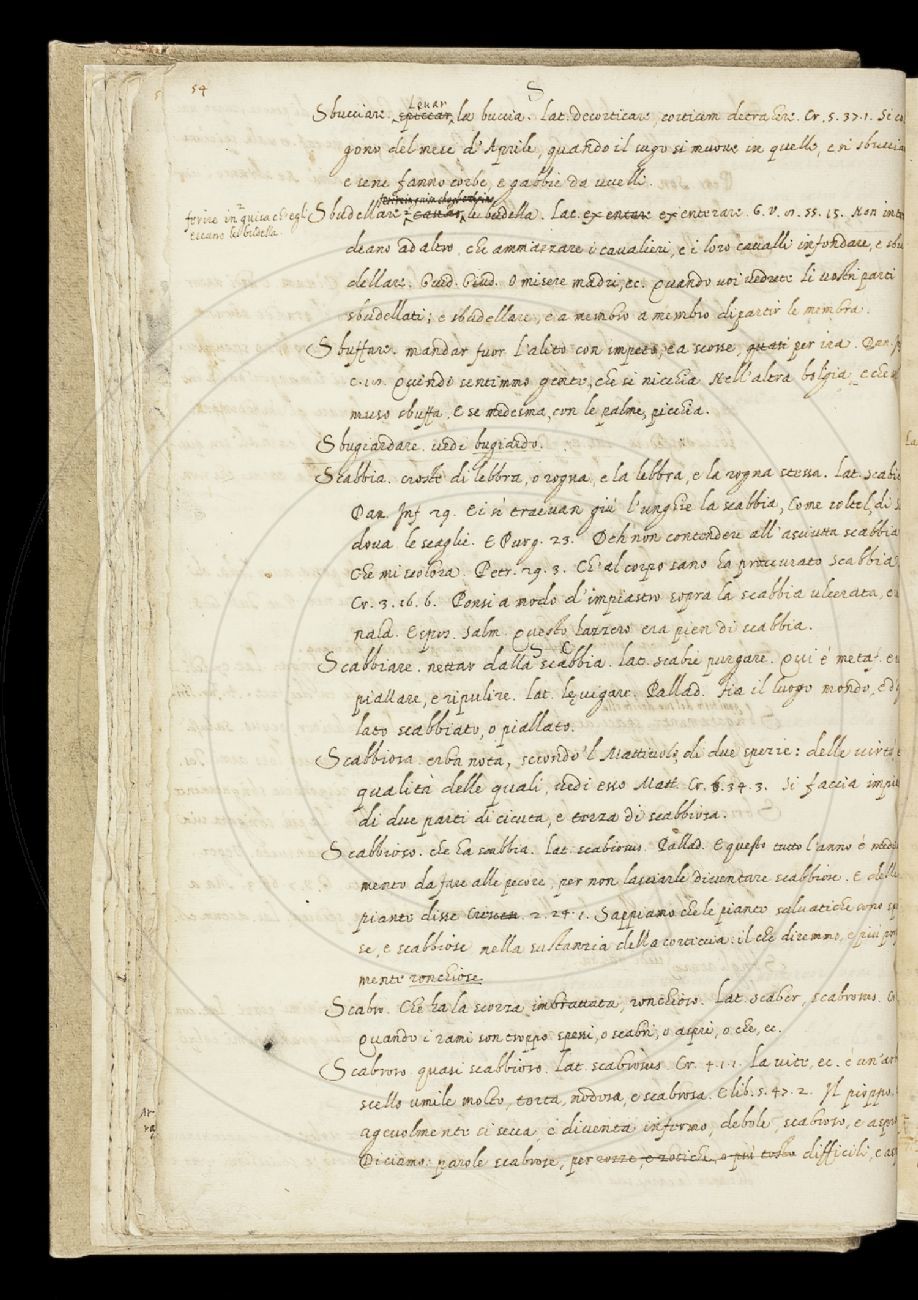 54
S
Sbucciare. spiccar Levar la buccia. Lat. decorticare, corticem detrahere. Cr. 5. 37. 1. Si co
gono del mese d'Aprile, quando il sugo si muove in quelle, e si sbuccia
e sene fanno corbe, e gabbie da uccelli.
ferire in guisa ch'egli
escano le budella.
Sbudellare. cavar le budella. Lat. exentare exenterare. G. V. 11. 55. 15. Non inte
deano ad altro, che ammazzare i cavalieri, e i loro cavalli infondare, e sbu
dellare. Guid. Giud. O misere madri, ec. Quando voi vedrete li vostri parti
sbudellati; e sbudellare, e a membro a membro dipartir le membra.
Sbuffare. mandar fuor l'alito con impeto, e a scosse, quasi per ira. Dan.
c. 18. Quindi sentimmo gente, che si nicchia Nell'altra bolgia, e che
muso sbuffa, E se medesma, con le palme, picchia.
Sbugiardare. vedi bugiardo.
Scabbia. croste di lebbra, o rogna, e la lebbra, e la rogna stessa. Lat. scabie
Dan. Inf 29. E si traevan giù l'unghie la scabbia, Come coltel, di s
dova le scaglie. E Purg. 23. Deh non contendere all'asciutta scabbia
Che mi scolora. Petr. 29. 3. Ch'al corpo sano ha procurato scabbia
Cr. 3. 16. 6. Ponsi a modo d'impiastro sopra la scabbia ulcerata, e
nala. Espos. Salm. Questo lazzero era pien di scabbia.
Scabbiare. nettar dalla scabbia. Lat. scabie purgare. Qui è metaf. e
piallare, e ripulire. Lat. levigare. Pallad. sia il luogo mondo, e d
lato scabbiato, o piallato.
Scabbiosa erba nota, secondo 'l Mattiuolo, di due spezie: delle virtù, e
qualità delle quali, vedi esso Matt. Cr. 6. 34. 3. Si faccia impia
di due parti di cicuta, e terza di scabbiosa.
Scabbioso. che ha scabbia. Lat. scabiosus. Pallad. E questo tutto l'anno è medi
mento da fare alle pecore, per non lasciarle diventare scabbiose. E delle
piante disse Crescen. 2. 24. 1. Sappiamo che le piante salvatiche sono sp
se, e scabbiose nella sustanzia della corteccia: il che diremmo, e più pro
mente ronchiose.
Scabro. Che ha la scorza imbrattata, ronchioso. Lat. scaber, scabrosus. Cr
Quando i rami son troppo spessi, o scabri, o aspri, o che, ec.
Scabroso. quasi scabbioso. Lat. scabrosus. Cr. 4. 1. 1. La vite, ec. è un'ar
scello umile molto, torta, nodosa, e scabrosa. E lib. 5. 47. 2. Il pioppo
agevolmente si secca, e diventa infermo, debole, scabroso, e aspro
Diciamo: parole scabrose, per rozze, e zotiche, o più tosto difficili, e as